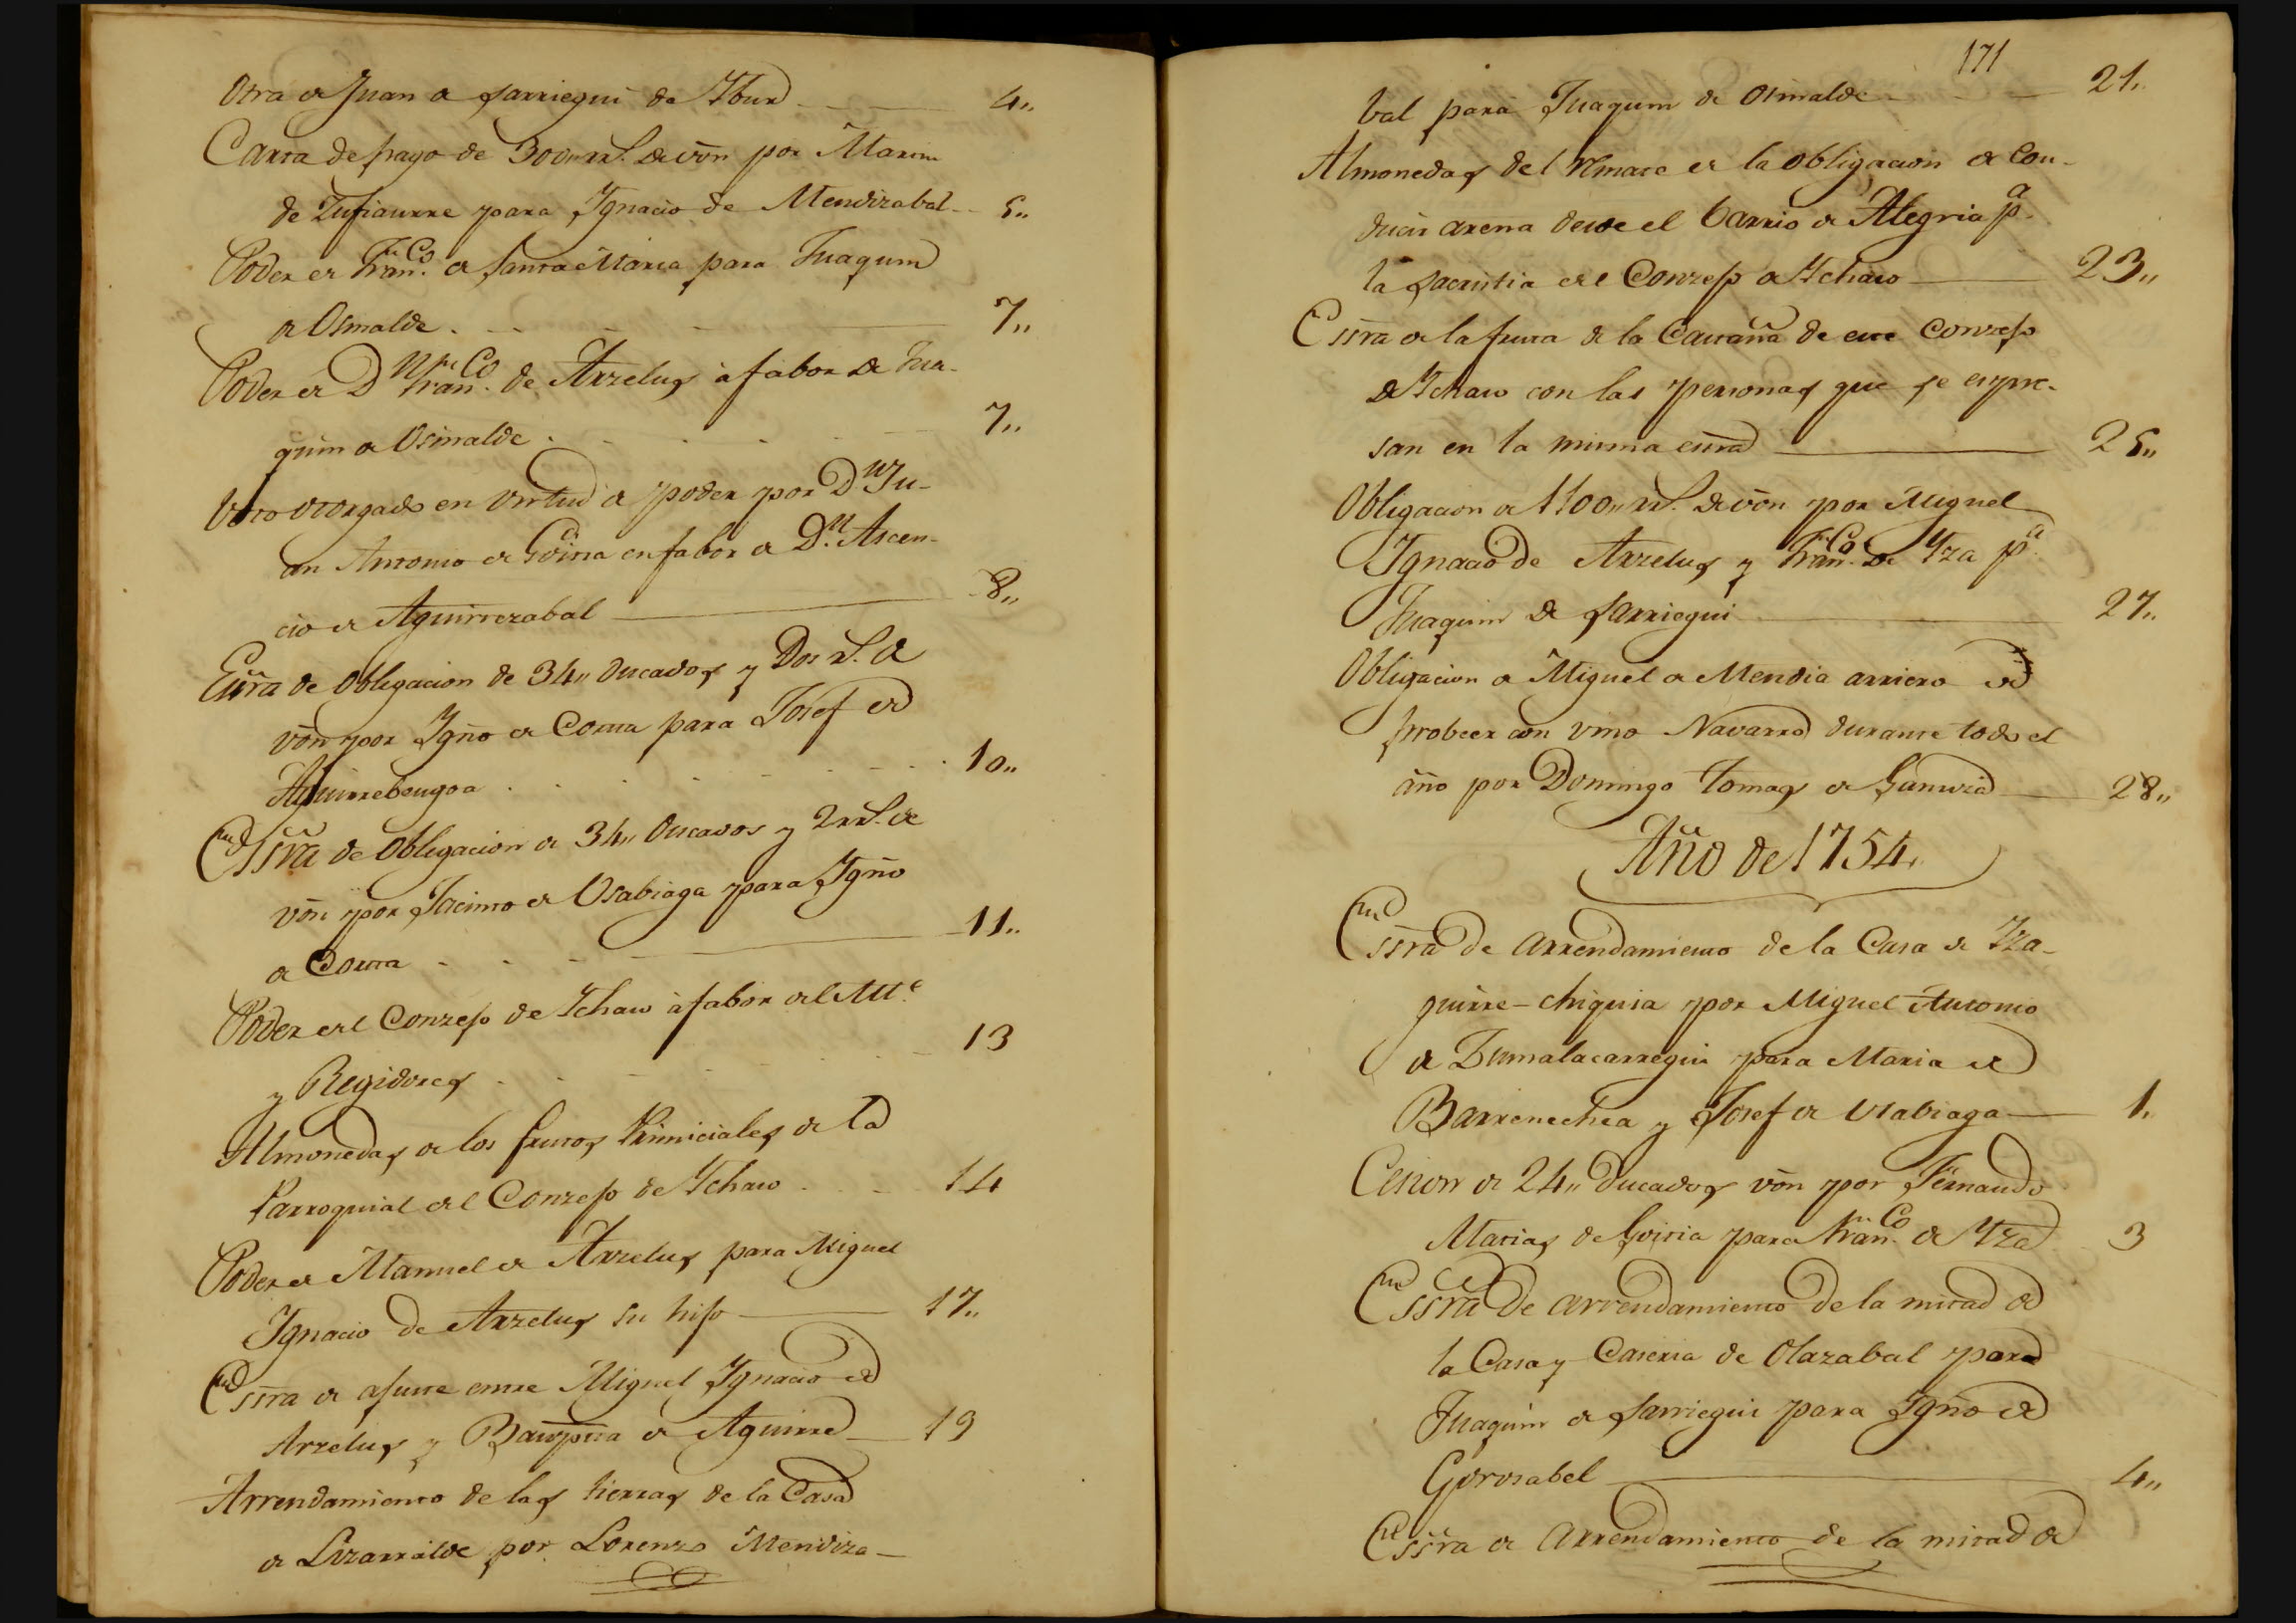 Otra de Juan de Sarriegui de Ybur 4,,
Carta de pago de 300,, rrs. de von por Martin
de Zufiaurre para Ygnacio de Mendizabal 5,,
Poder de Fran.co de Santa Maria para Juaquin
de Osinalde 7,,
Poder de Dn Fran.co de Arzelus à fabor de Jua-
quin de Osinalde 7,,
Otro otorgado en virtud de poder por Dn Ju-
an Antonio de Goiria en fabor de D.n Ascen-
cio de Aguirrezabal 8,,
Essra de obligacion de 34,, Ducados y Dos rs. de
von por Ygño de Corta para Josef de
Aguirrebengoa 10,,
Essra de obligacion de 34,, Ducados y 2 rrs. de
von por Jacinto de Usabiaga para Ygño
de Corta 11,,
Poder del Conzejo de Ychaso à fabor del Alle
y Regidores 13
Almonedas de los frutos Primiciales de la
Parroquial del Conzejo de Ychaso 14
Poder de Manuel de Arzelus para Miguel
Ygnacio de Arzelus su hijo 17,,
Essra de ajuste entre Miguel Ygnacio de
Arzelus y Bauptta de Aguirre 19
Arrendamiento de las tierras de la Casa
de Lizarralde por Lorenzo Mendiza-
171
bal para Juaquin de Osinalde 21,,
Almonedas del Rmate de la obligacion de con-
ducir arena desde el barrio de Alegria pa
la sacristia del Conzejo de Ychaso 23,,
Essra de la fruta de la Castaña de este Conzejo
de Ychaso con las personas que se expre-
san en la misma essra 25,,
Obligacion de 1100,, rrs. de von por Miguel
Ygnacio de Arzelus y Fran.co de Yza pa
Juaquin de Sarriegui 27,,
Obligacion de Miguel de Mendia arriero de
probeer con vino Navarro durante todo el
año por Domingo Tomas de Gunuza 28,,
Año de 1754,
Essra de arrendamiento de la Casa de Yza-
guirre-chiquia por Miguel Antonio
de Zumalacarregui para Maria de
Barrenechea y Josef de Usabiaga 1,
Cesion de 24,, Ducados von por Fernando
Matias de Goiria para Fran.co de Yza 3
Essra de arrendamiento de la mitad de
la Casa y Caseria de Olazabal para
Juaquin de Sarriegui para Ygño de
Gorosabel 4,,
Essra de arrendamiento de la mitad de